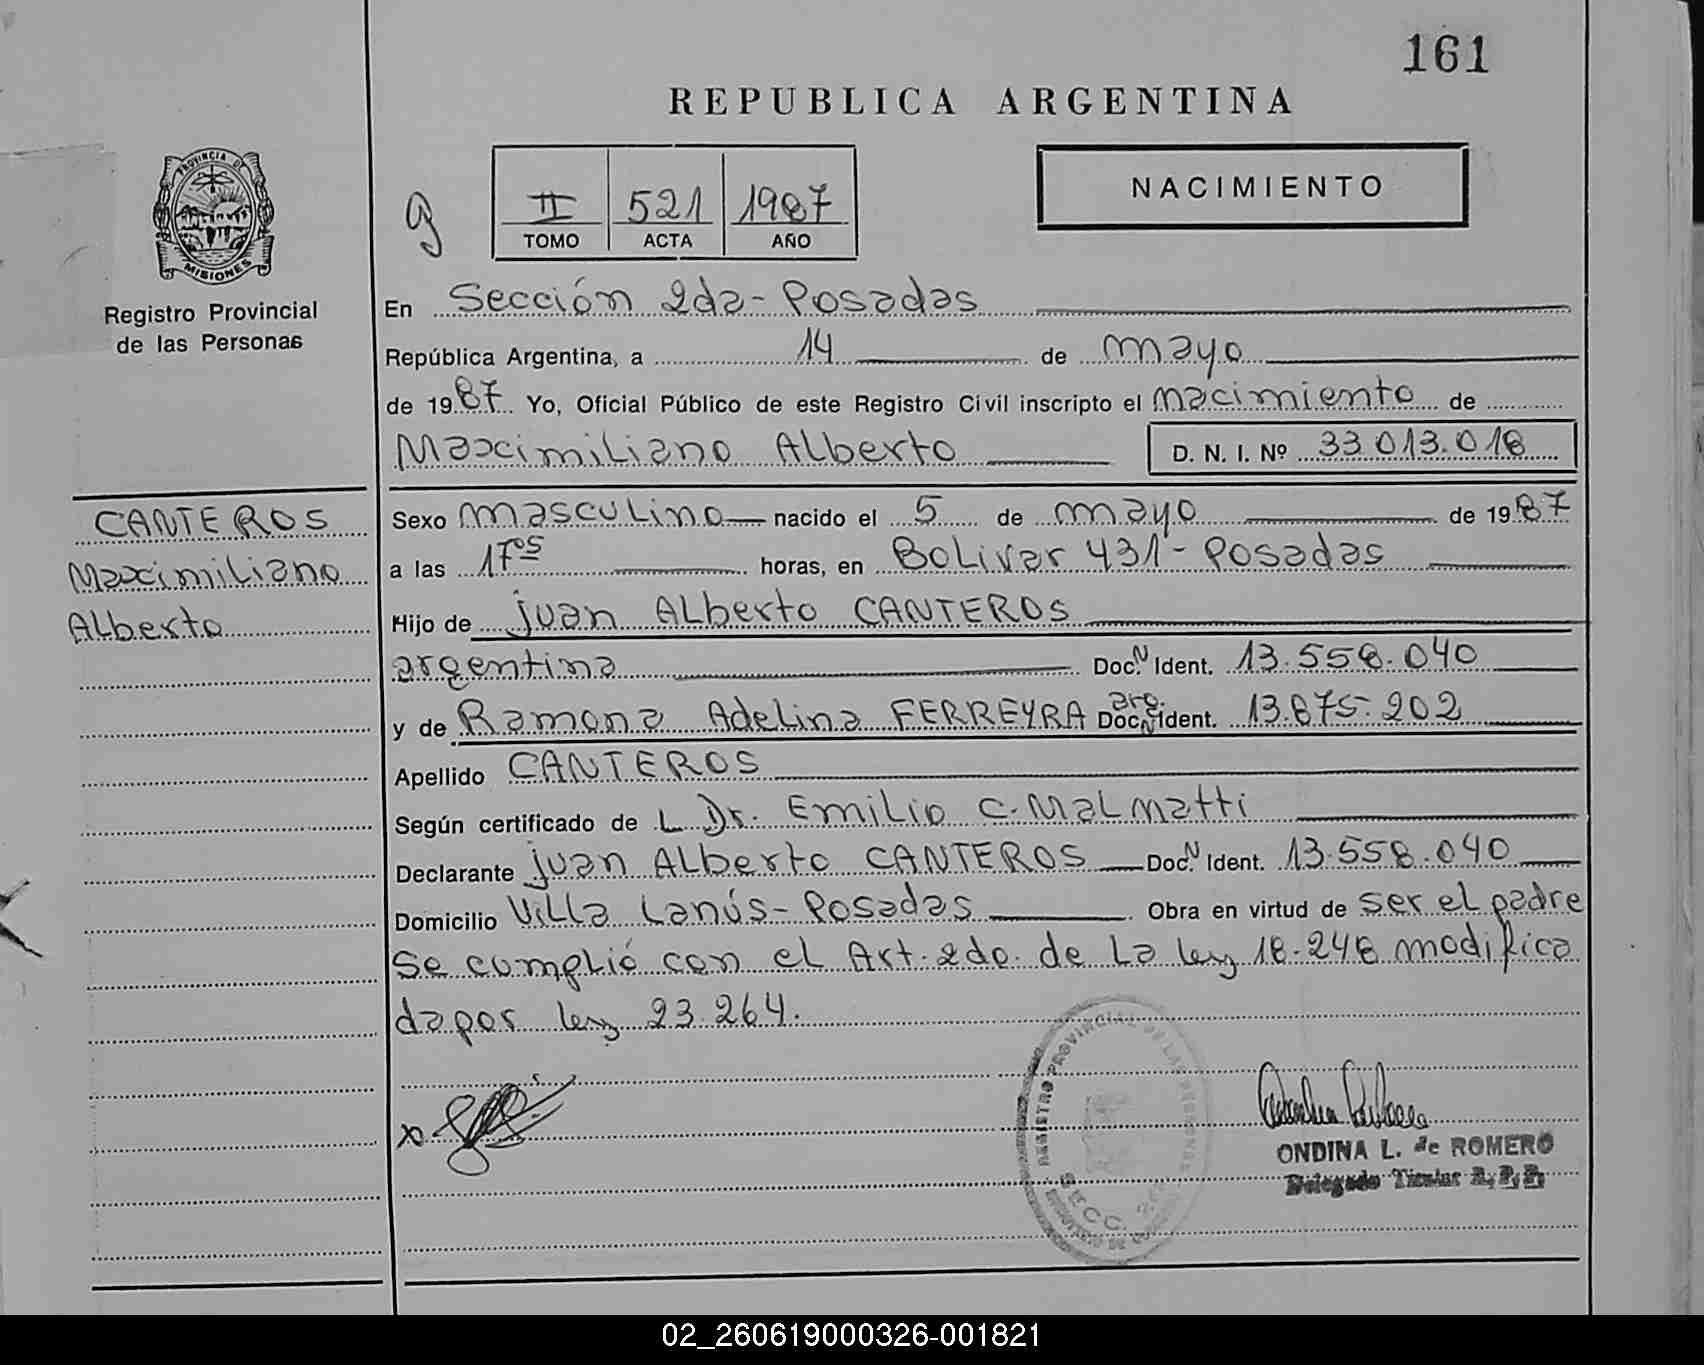 161
REPUBLICA ARGENTINA
PROVINCIA DE
MISIONES
Registro Provincial
de las Personas
g
II 521 1987
TOMO ACTA AÑO
NACIMIENTO
En Sección 2da - Posadas
República Argentina, a 14 de mayo
de 1987 Yo, Oficial Público de este Registro Civil inscripto el nacimiento de
Maximiliano Alberto D. N. I. Nº 33.013.018
CANTEROS
Maximiliano
Alberto
Sexo masculino nacido el 5 de mayo de 1987
a las 17os horas, en Bolivar 431 - Posadas
Hijo de juan Alberto CANTEROS
argentina Doc. N Ident. 13.558.040
y de Ramona Adelina FERREYRA arg. Doc. N Ident. 13.875.202
Apellido CANTEROS
Según certificado de L Dr. Emilio C. Malmatti
Declarante juan Alberto CANTEROS Doc. N Ident. 13.558.040
Domicilio Villa Lanús - Posadas Obra en virtud de ser el padre
Se cumplió con el Art. 2do. de la ley 18.248 modifica
da por ley 23.264.
x
REGISTRO PROVINCIAL DE LAS PERSONAS
SECC. 2a
ONDINA L. de ROMERO
Delegado Titular R. P. P.
02_260619000326-001821